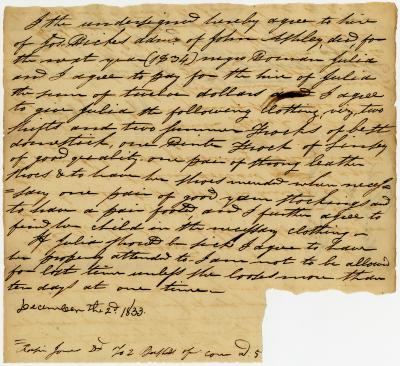 I the undersigned hereby agree to hire
of Jos. Dickes admr. of John Ashley decd for
the next year (1834) negro Woman Julia
and I agree to pay for the hire of Julia
the sum of twelve dollars and I agree
to give Julia the following clothing, viz, two
shifts and two summer Frocks of both
domestick, one Winter Frock of Linsey
of good quality one pair of strong leather
shoes & to have her shoes mended when neces=
=sary one pair of good yarn stockings and
to have a pair footed and I further agree to
find her child in the necessary clothing—
If Julia should be sick I agree to have
her properly attended to. I am not to be allowed
for lost time unless she looses more than
ten days at one time—
December the 2d. 1833.
Jones Dr To 2 of corn 5